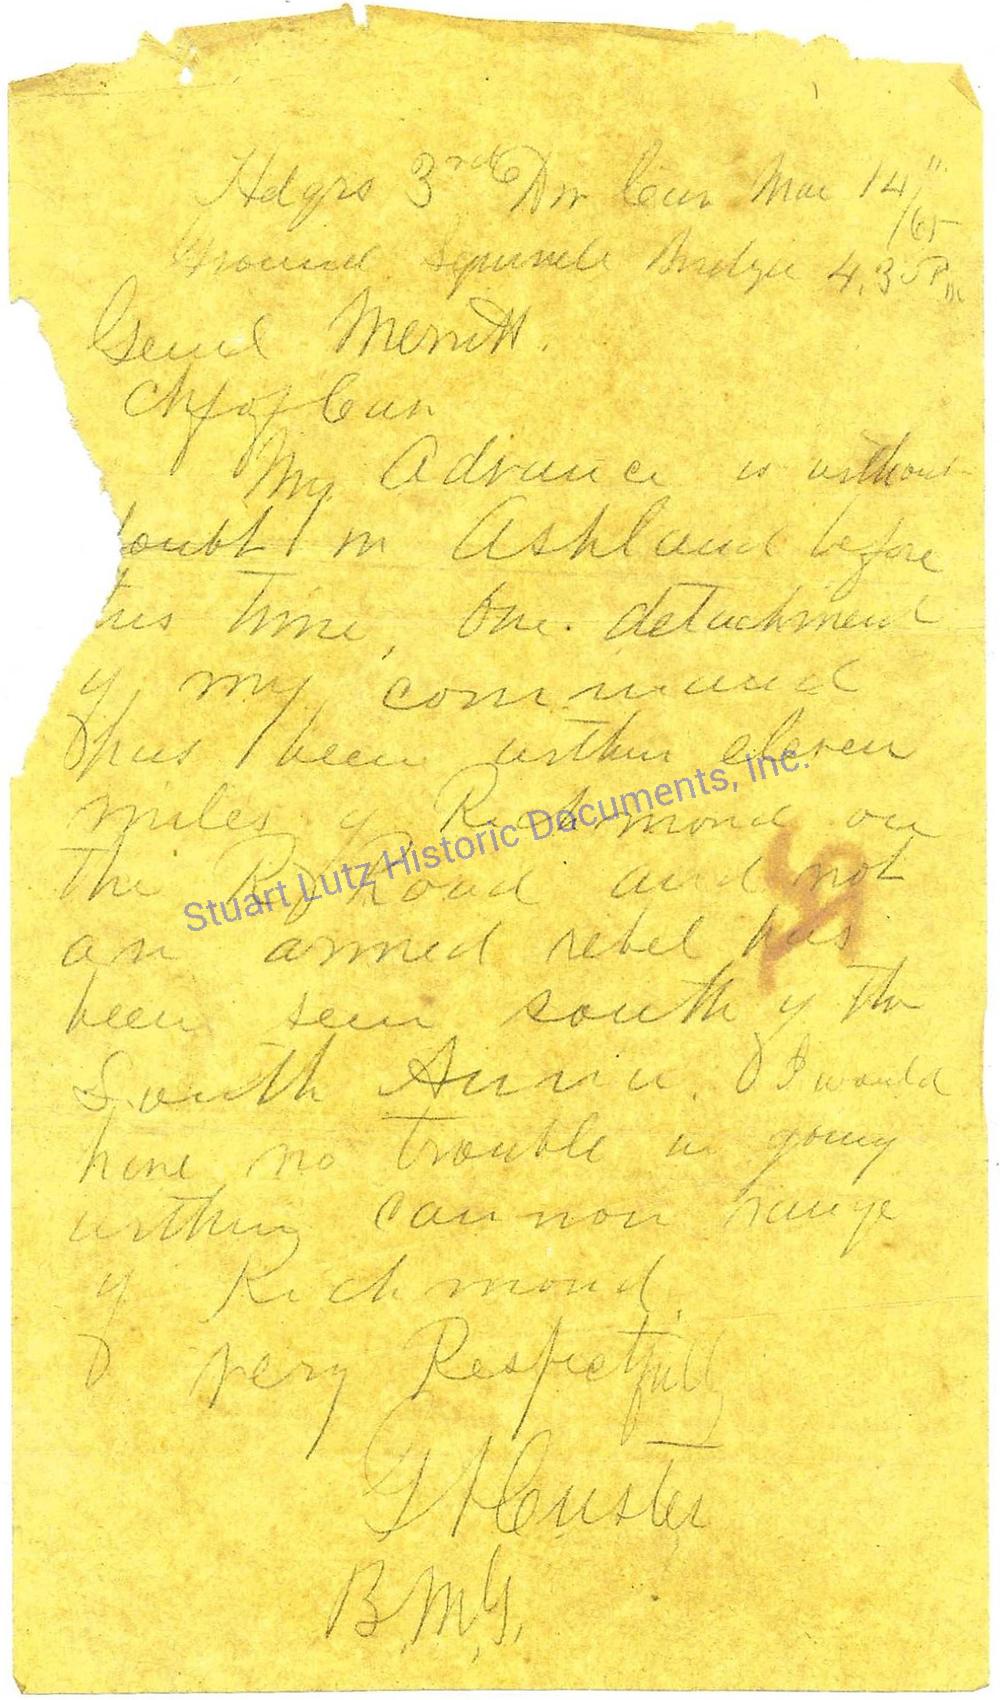 Hdqrs 3rd Div Cav Mar 14"/65
Ground Squirrel Bridge 4.30 Pm
Genl Merritt.
Chf of Cav
My Advance is without
doubt in Ashland before
this time, One detachment
of my command
has been within eleven
miles of Richmond on
the R Road and not
an armed rebel has
been seen south of the
South Anna. I would
have no trouble in going
within cannon range
of Richmond.
very Respectfully
G A Custer
B.M.G.
Stuart Lutz Historic Documents, Inc.